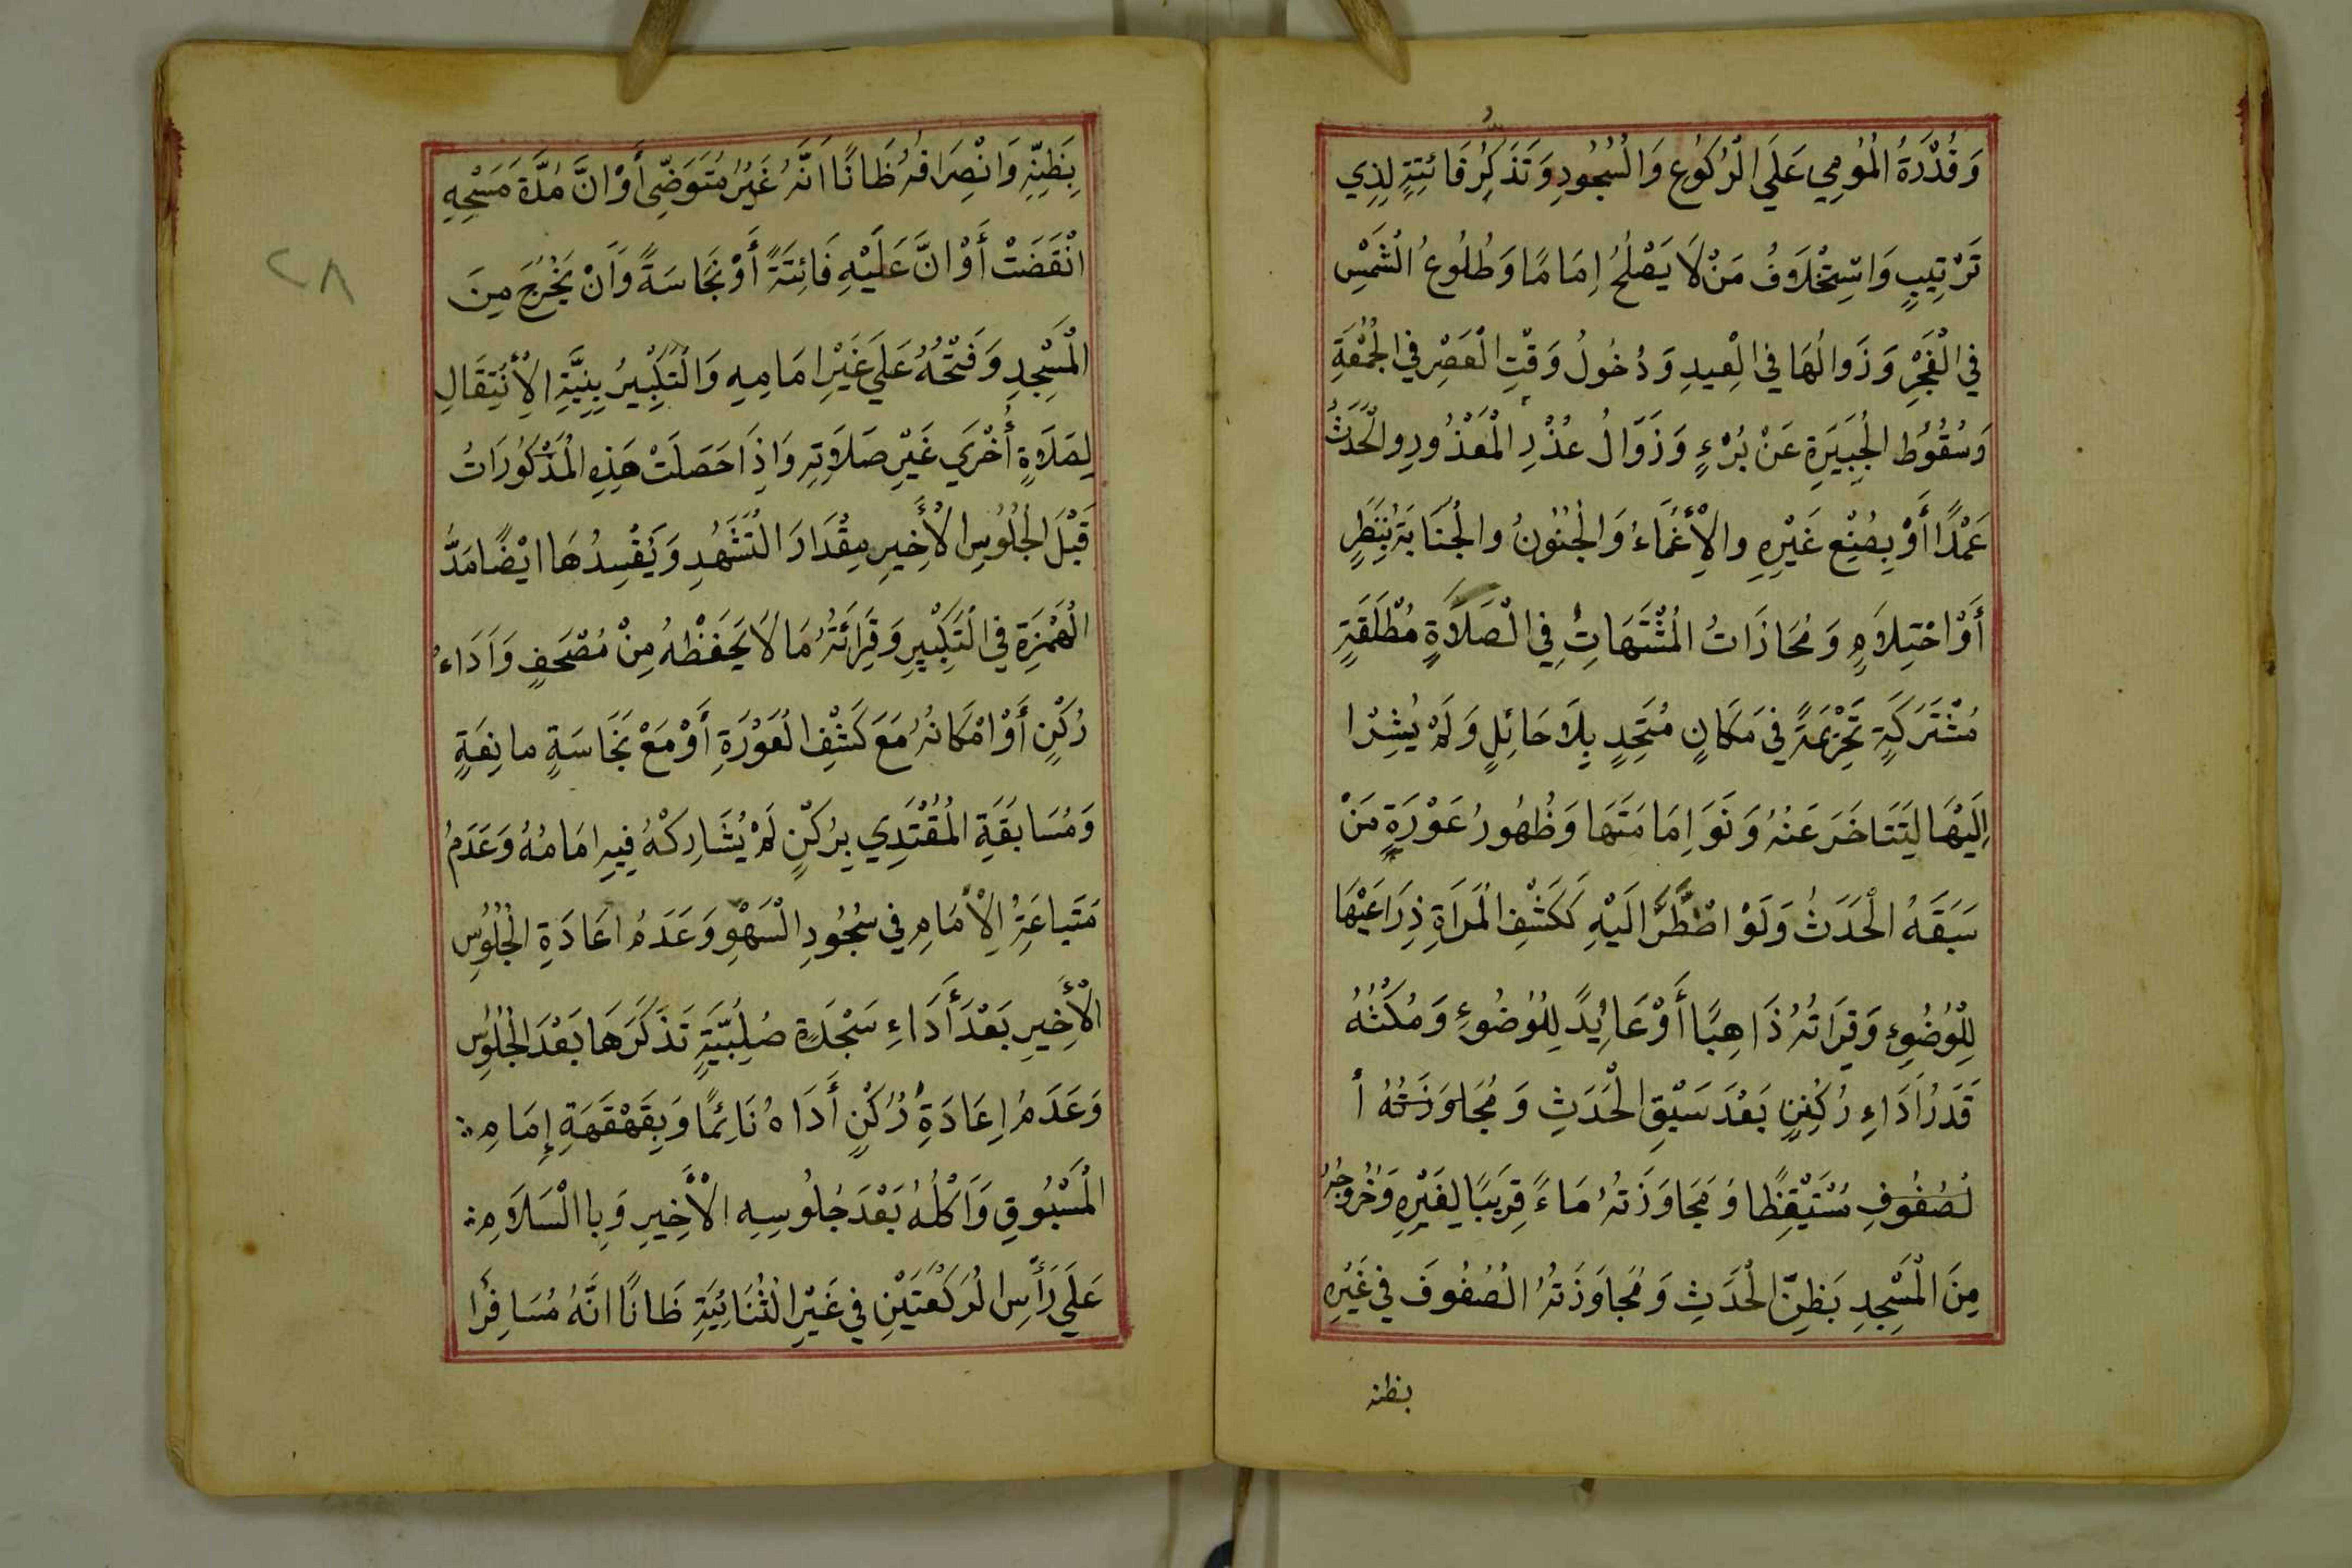 وَقُدْرَةُ الْمُومِي عَلَي الْرُكُوُعِ وَالْسُجُودِ وَتَذَكِّرُ فَائِتِةٍ لِذِي
تَرْتِيبٍ وَاسْتِخْلَافُ مَنْ لَا يَصْلُحُ اِمَامًا وَطُلُوعُ الْشَمْسِ
فِي الْفَجْرِ وَزَوَالُهَا فِي الْعِيدِ وَدُخُولُ وَقْتِ الْعَصْرِ فِي الْجُمْعَةِ
وَسُقُوُطُ الْجَبِيَرِةِ عَنْ بُرْءٍ وَزَوَالُ عُذْرِ الْمَعْذُورِ والْحَدَثُ
عَمْدًا أَوْ بِصُنْعِ غَيْرِهِ والْأِغْمَاءُ وَالْجُنُونُ والْجُنَابَةُ بِنَظَرٍ
أَوْ احْتِلَامٍ وَمُحَاذَاتُ الْمُشْتَهَاتِ فِي الْصَلَاةٍ مُطْلَقَةٍ
مُشْتَرَكَةٍ تَحْرِيْمَةً فِي مَكَانٍ مُتَحِدٍ بِلَا حَائِلٍ وَلَمْ يُشِرْا
اِلَيْهَا لِتَتَاخَرَ عَنْهُ وَنَوَ اِمَامَتَهَا وَظُهُورُ عَوْرَةٍ مَنْ
سَبَقَهُ الْحَدَثُ وَلَوْ اضْطُّرَّ الَيْهِ كَكَشْفِ الْمَرَاَةِ ذِرَاعَيْهَا
لِلْوُضُوِءِ وَقِرَاتُهُ ذَاهِبًا أَوْ عَائِدً لِلْوُضُوءِ وَمُكْثُهُ
قَدَرُ اَدَاءِ رُكْنٍ بَعْدَ سَبْقِ الْحَدَثِ وَمُجَاوَزَتُهُ أ
لصُفُوفِ مُسْتَيْقِظًا وَمَجَاوَزَتُهُ مَاءً قِرَيبًا لِغَيْرِهِ وَخُرُوجُهُ
مِنَ الْمَسْجِدِ بَظِنِّ الْحَدَثِ وَمُجَاوَزَتُهُ الْصُفُوفَ فِي غَيْرِهِ
بظنه
٢٨
بِظَنِّهِ وَانْصِرَافُهُ ظَانًا اَنَّهُ غَيْرُ مُتَوَضِّى أَوْ انَّ مُدَّةَ مَسْحِهِ
انْقَضَتْ أَوْ انَّ عَلَيْهِ فَائِتَةً أَوْ نَجَاسَةً وَاَنْ يَخْرُجَ مِنَ
الْمَسْجِدِ وَفَتْحُهُ عَلَي غَيْرِ امَامِهِ وَالْتَكْبِيرُ بِنِيَّةِ الْأِنْتِقَالِ
لِصَلَاةٍ أُخْرَي غَيْرِ صَلَاتِهِ وَاِذَا حَصَلَتْ هَذِهِ الْمَذْكُورَاتُ
قَبْلَ الْجُلُوُسِ الْأَخِيرِ مِقْدَارَ الْتَشَهُدِ وَيُفْسِدُهَا ايْضًا مَدُّ
الْهَمْزَةِ فِي الْتَكْبِيرِ وَقِرَائَتُهُ مَا لَا يَحْفَظْهُ مِنْ مُصْحَفٍ وَاَدَاءُ
رُكْنٍ أَوْ امْكَانُهُ مَعَ كَشْفِ الْعَوْرَةِ أَوْ مَعْ نَجَاسَةٍ مانِعَةٍ
وَمُسَابَقَةِ الْمُقْتَدِي بِرُكْنٍ لَمْ يُشَارِكْهُ فِيهِ امَامُهُ وَعَدَمُ
مَتَياعَةِ الْأِمَامِ فِي سُجُودِ الْسَهْوِ وَعَدَمُ اعَادَةِ الْجُلُوُسِ
الْأَخِيرِ بَعْدَ أَدَاءِ سَجْدَةٍ صُلْبِيَّةٍ تَذَكَرَهَا بَعْدَ الْجُلُوُسِ
وَعَدَمُ اِعَادَةِ رُكْنٍ أَدَاهُ نَائِمًا وَبِقَهْقَهَةِ إِمَامِ
الْمَسْبُوقِ وَاَكْلُهُ بَعْدَ جُلُوسِهِ الْأَخِيرِ وَبِاالْسَلَامِ
عَلَي رَأْسِ الْرَكْعَتَيْنِ فِي غَيْرِ الْثُنَائِيَةِ ظَانًا انَّهُ مُسَافِرًا